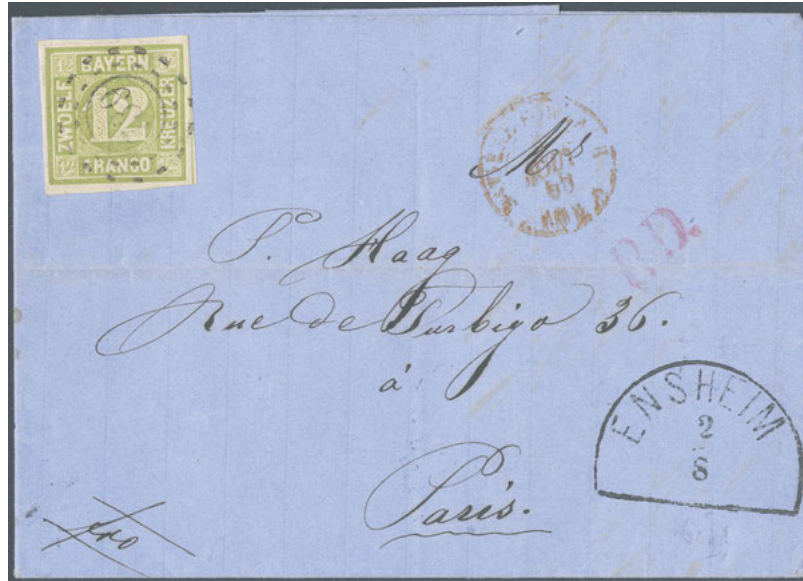 12 BAYERN 12
ZWÖLF
12
KREUZER
12 FRANCO 12
Mr
P. Haag
Rue de Turbigo 36.
à
Paris.
P.D.
ENSHEIM
2
8
fro